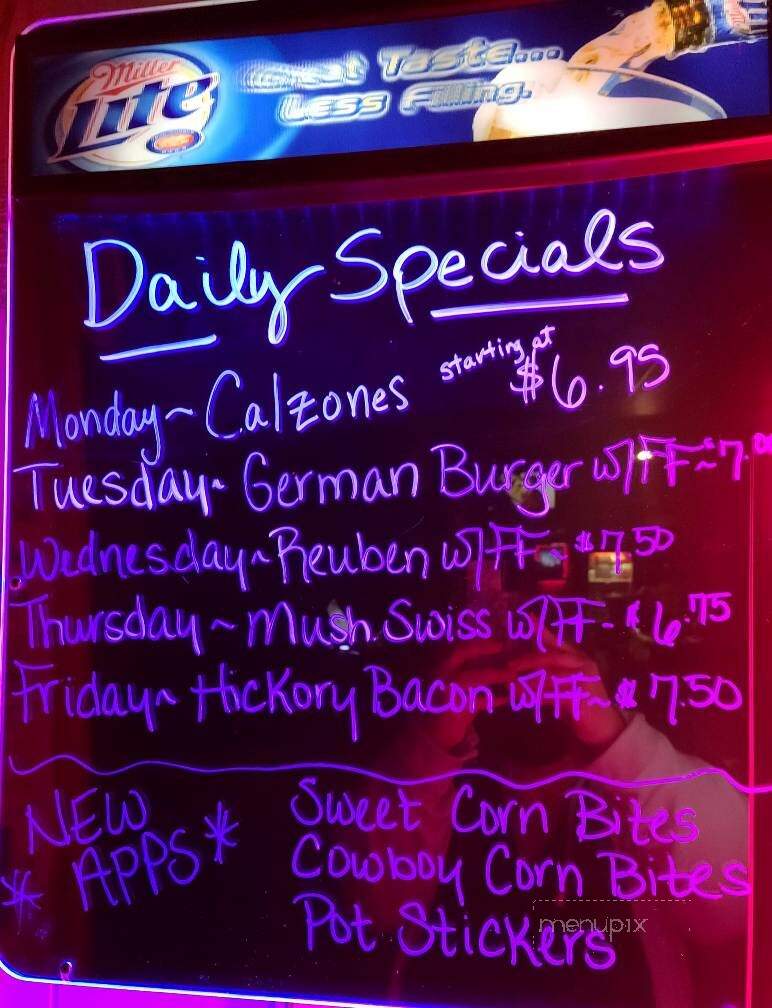 Miller
Lite
Great Taste...
Less Filling.
Daily Specials
Monday~ Calzones starting at $6.95
Tuesday~ German Burger w/FF~ $7.00
Wednesday~ Reuben w/FF~ $7.50
Thursday~ Mush. Swiss w/FF- $6.75
Friday~ Hickory Bacon w/FF~ $7.50
NEW
* APPS *
Sweet Corn Bites
Cowboy Corn Bites
Pot Stickers
menupix